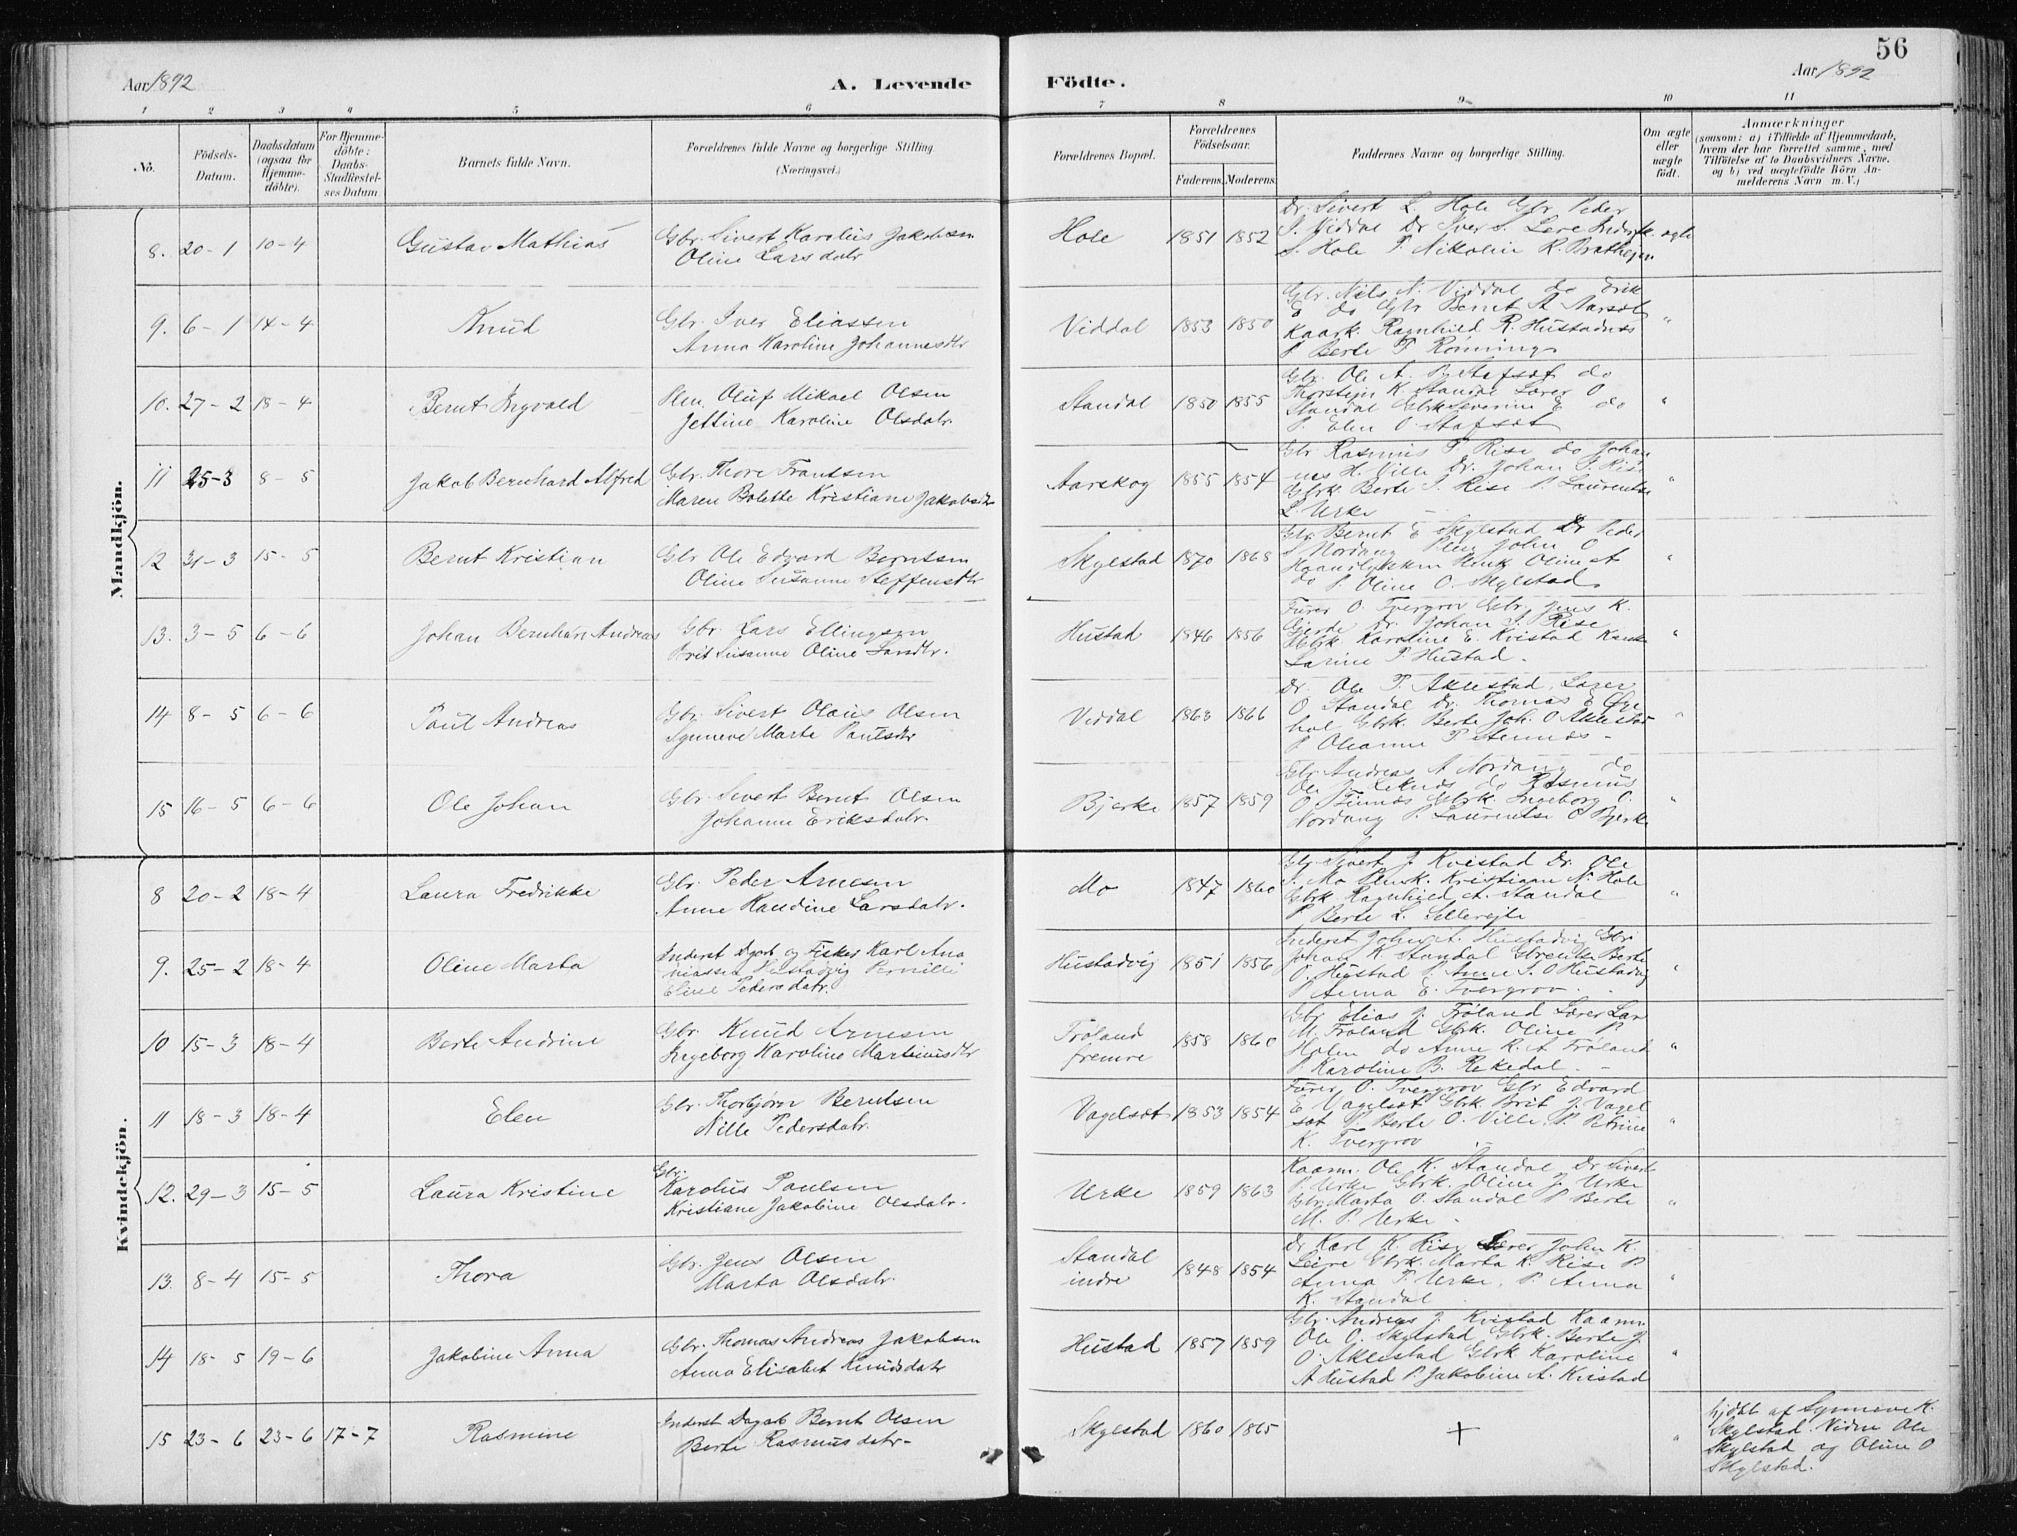 56
Aar 1892
A. Levende
Födte.
Aar 1892
1 2 3 4 5 6 7 8 9 10 11
No.
Födsels-
Datum.
Daabsdatum
(ogsaa for
Hjemme-
döbte).
For Hjemme-
döbte:
Daabs-
Stadfæstel-
ses Datum.
Barnets fulde Navn.
Forældrenes fulde Navne og borgerlige Stilling.
(Næringsvei.)
Forældrenes Bopæl.
Forældrenes
Födselsaar.
Faderens. Moderens.
Faddernes Navne og borgerlige Stilling.
Om ægte
eller
uægte
födt.
Anmærkninger
(saasom: a) i Tilfælde af Hjemmedaab,
hvem der har forrettet samme, med
Tilföielse af to Daabsvidners Navne,
og b) ved uægtefödte Börn An-
melderens Navn m. V.)
Mandkjön.
8. 20-1 10-4 Gustav Mathias
Gbr. Sivert Karolus Jakobsen
Oline Larsdatr
Hole 1851 1852
Dr. Sivert L. Hole Gbr. Peder
S. Viddal Dr Iver S. Lere
S. Hole P. Nikoline R. Brathejen
ægte
9. 6-1 14-4 Knud
Gbr. Iver Eliassen
Anna Karoline Johannesdtr
Viddal 1853 1850
Gbr. Nils N. Viddal do Erik
E do Gbr Bernt A Aarset
Kaark. Ragnhild R. Hustadnes
P Berte P Rønning
"
10. 27-2 18-4 Bernt Ingvald
Oluf Mikael Olsen
Jettine Karoline Olsdatr.
Standal 1850 1855
Gbr. Ole A. Stafset do
Thorstejn K. Standal Lærer O
Standal Gbrk Severine E do
P. Elen O. Stafset
"
11 25-3 8-5 Jakob Bernhard Alfred
Gbr. Thore Frantsen
Maren Bolette Kristiane Jakobsdtr
Aarskog 1855 1854
Gbr Rasmus P Rise do Johan
nes H. Ville Dr. Johan S. Rise
Gbrk. Berte S. Rise P Laurentse
L. Urke
"
12 31-3 15-5 Bernt Kristian
Gbr Ole Edvard Berntsen
Oline Susanne Steffensdtr
Skylstad 1870 1868
Gbr. Bernt E Skylstad Dr Peder
S Nordang John O
Oline A
do P. Oline O. Skylstad
"
13. 3-5 6-6 Johan Bernhard Andreas
Gbr. Lars Ellingsen
Brit Susanne Oline Larsdtr.
Hustad 1846 1856
Furer O. Tvergrov Gbr. Jens K.
Gjerde Dr. Johan S. Rise
Gbrk Karoline E. Kvistad
Larine P. Hustad.
"
14 8-5 6-6 Paul Andreas
Gbr. Sivert Olaus Olsen
Synneve Marte Paulsdtr
Viddal 1863 1866
Dr. Ole P. Aklestad, Lærer
O Standal Dr. Thomas E Øye
hol Gbrk. Berte Joh. O Aklestad
P Oleanne P Stennes.
"
15 16-5 6-6 Ole Johan
Gbr. Sivert Bernt Olsen
Johanne Eriksdatr.
Bjerke 1857 1859
Gbr. Andreas A Nordang do
Ole J. Leknes do Rasmus
O. Finnes Gbrk. Ingeborg O.
Nordang P. Laurentse O Bjerke
"
Kvindekjön.
8 20-2 18-4 Laura Fredrikke
Gbr. Peder Arnesen
Anne Handine Larsdatr.
Mo 1847 1860
Gbr. Sivert J. Kvistad Dr. Ole
S. Mo Kristiane N. Hole
Gbrk Ragnhild A. Standal
P Berte L. Sellerejte
"
9. 25-2 18-4 Oline Marta
Inderst Dgarb og Fisker Karl Ana
niassen Hustadvig Pernille
Eline Pedersdatr.
Hustadvig 1851 1856
Inderst John A. Hustadvig Gbr
Johan K Standal Berte
O. Hustad P. Anne S. O Hustadvig
P Anna E. Tvergrov.
"
10 15-3 18-4 Berte Andrine
Gbr. Knud Arnesen
Ingeborg Karoline Martinusdtr
Frøland
fremre
1858 1860
Gbr Elias J. Frøland Lærer Lars
M. Frøland Gbrk. Oline P.
Holen do Anne R. A Frøland
P Karoline B. Rekedal.
"
11 18-3 18-4 Elen
Gbr. Thorbjørn Berntsen
Nille Pedersdatr.
Vagelset 1853 1854
Furer O. Tvergrov Gbr Edvard
E Vagelset Gbrk. Brit J. Vagel
set P. Berte O. Ville, P. Petrine
K. Tvergrov
"
12. 29-3 15-5 Laura Kristine
Gbr.
Karolus Paulsen
Kristiane Jakobine Olsdatr.
Urke 1859 1863
Kaarm. Ole K. Standal, Dr Sivert
P. Urke Gbrk. Oline J. Urke
Gbr. Marta O. Standal P Berte
M. P. Urke
"
13. 8-4 15-5 Thora
Gbr. Jens Olsen
Marta Olsdatr.
Standal
indre
1848 1854
Dr Karl K. Rise Lærer John K.
Leire Gbrk. Marta K. Rise P
Anna P. Urke, P. Anna
K. Standal
"
14 18-5 19-6 Jakobine Anna
Gbr. Thomas Andreas Jakobsen
Anna Elisabet Knudsdatr
Hustad 1857 1859
Gbr. Andreas J. Kvistad Kaarm.
Ole O. Skylstad Gbrk. Berte J.
O. Aklestad Gbrk Karoline
A Hustad P. Jakobine A. Kvistad
"
15 23-6 23-6 17-7 Rasmine
Inderst Dagarb Bernt Olsen
Berte Rasmusdatr.
Skylstad 1860 1865
+
"
hjdbt af Synneve K.
Skylstad Vidne Ole
Skylstad og Oline O
Skylstad.